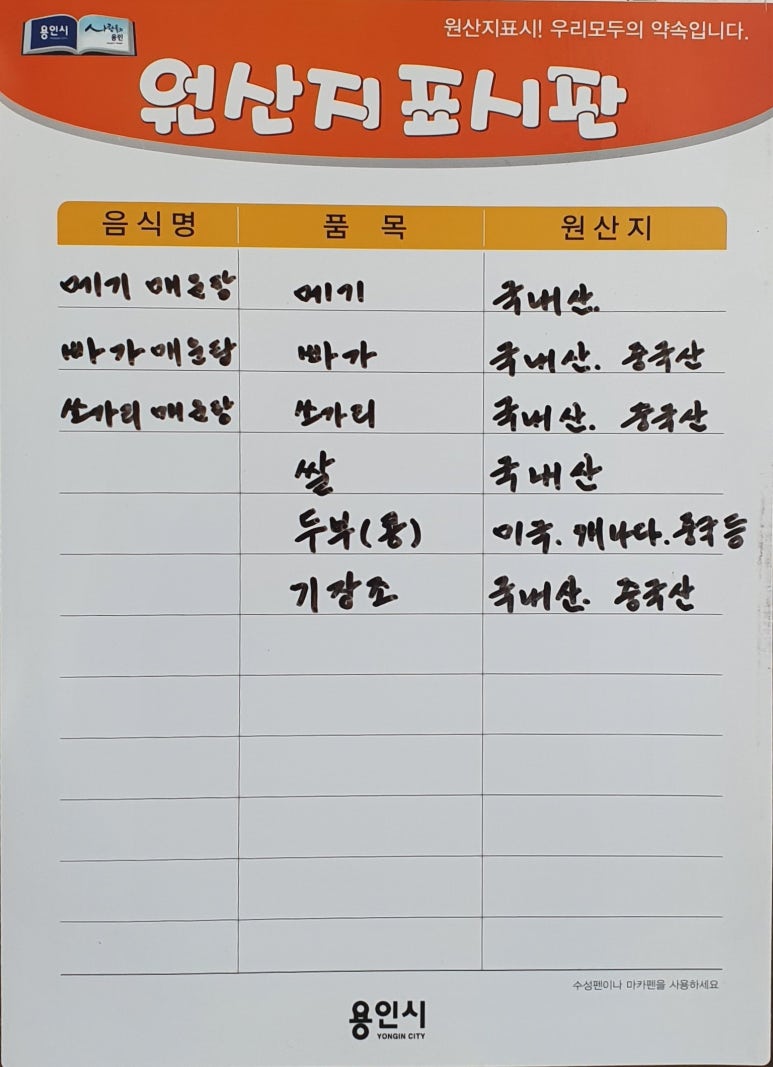 용인시 사람들의 용인
원산지표시! 우리모두의 약속입니다.
원산지 표시판
음식명 품 목 원산지
메기 매운탕 메기 국내산.
빠가 매운탕 빠가 국내산. 중국산
쏘가리 매운탕 쏘가리 국내산. 중국산
쌀 국내산
두부(콩) 미국. 캐나다. 중국 등
기장조 국내산. 중국산
수성펜이나 마카펜을 사용하세요
용인시
YONGIN CITY